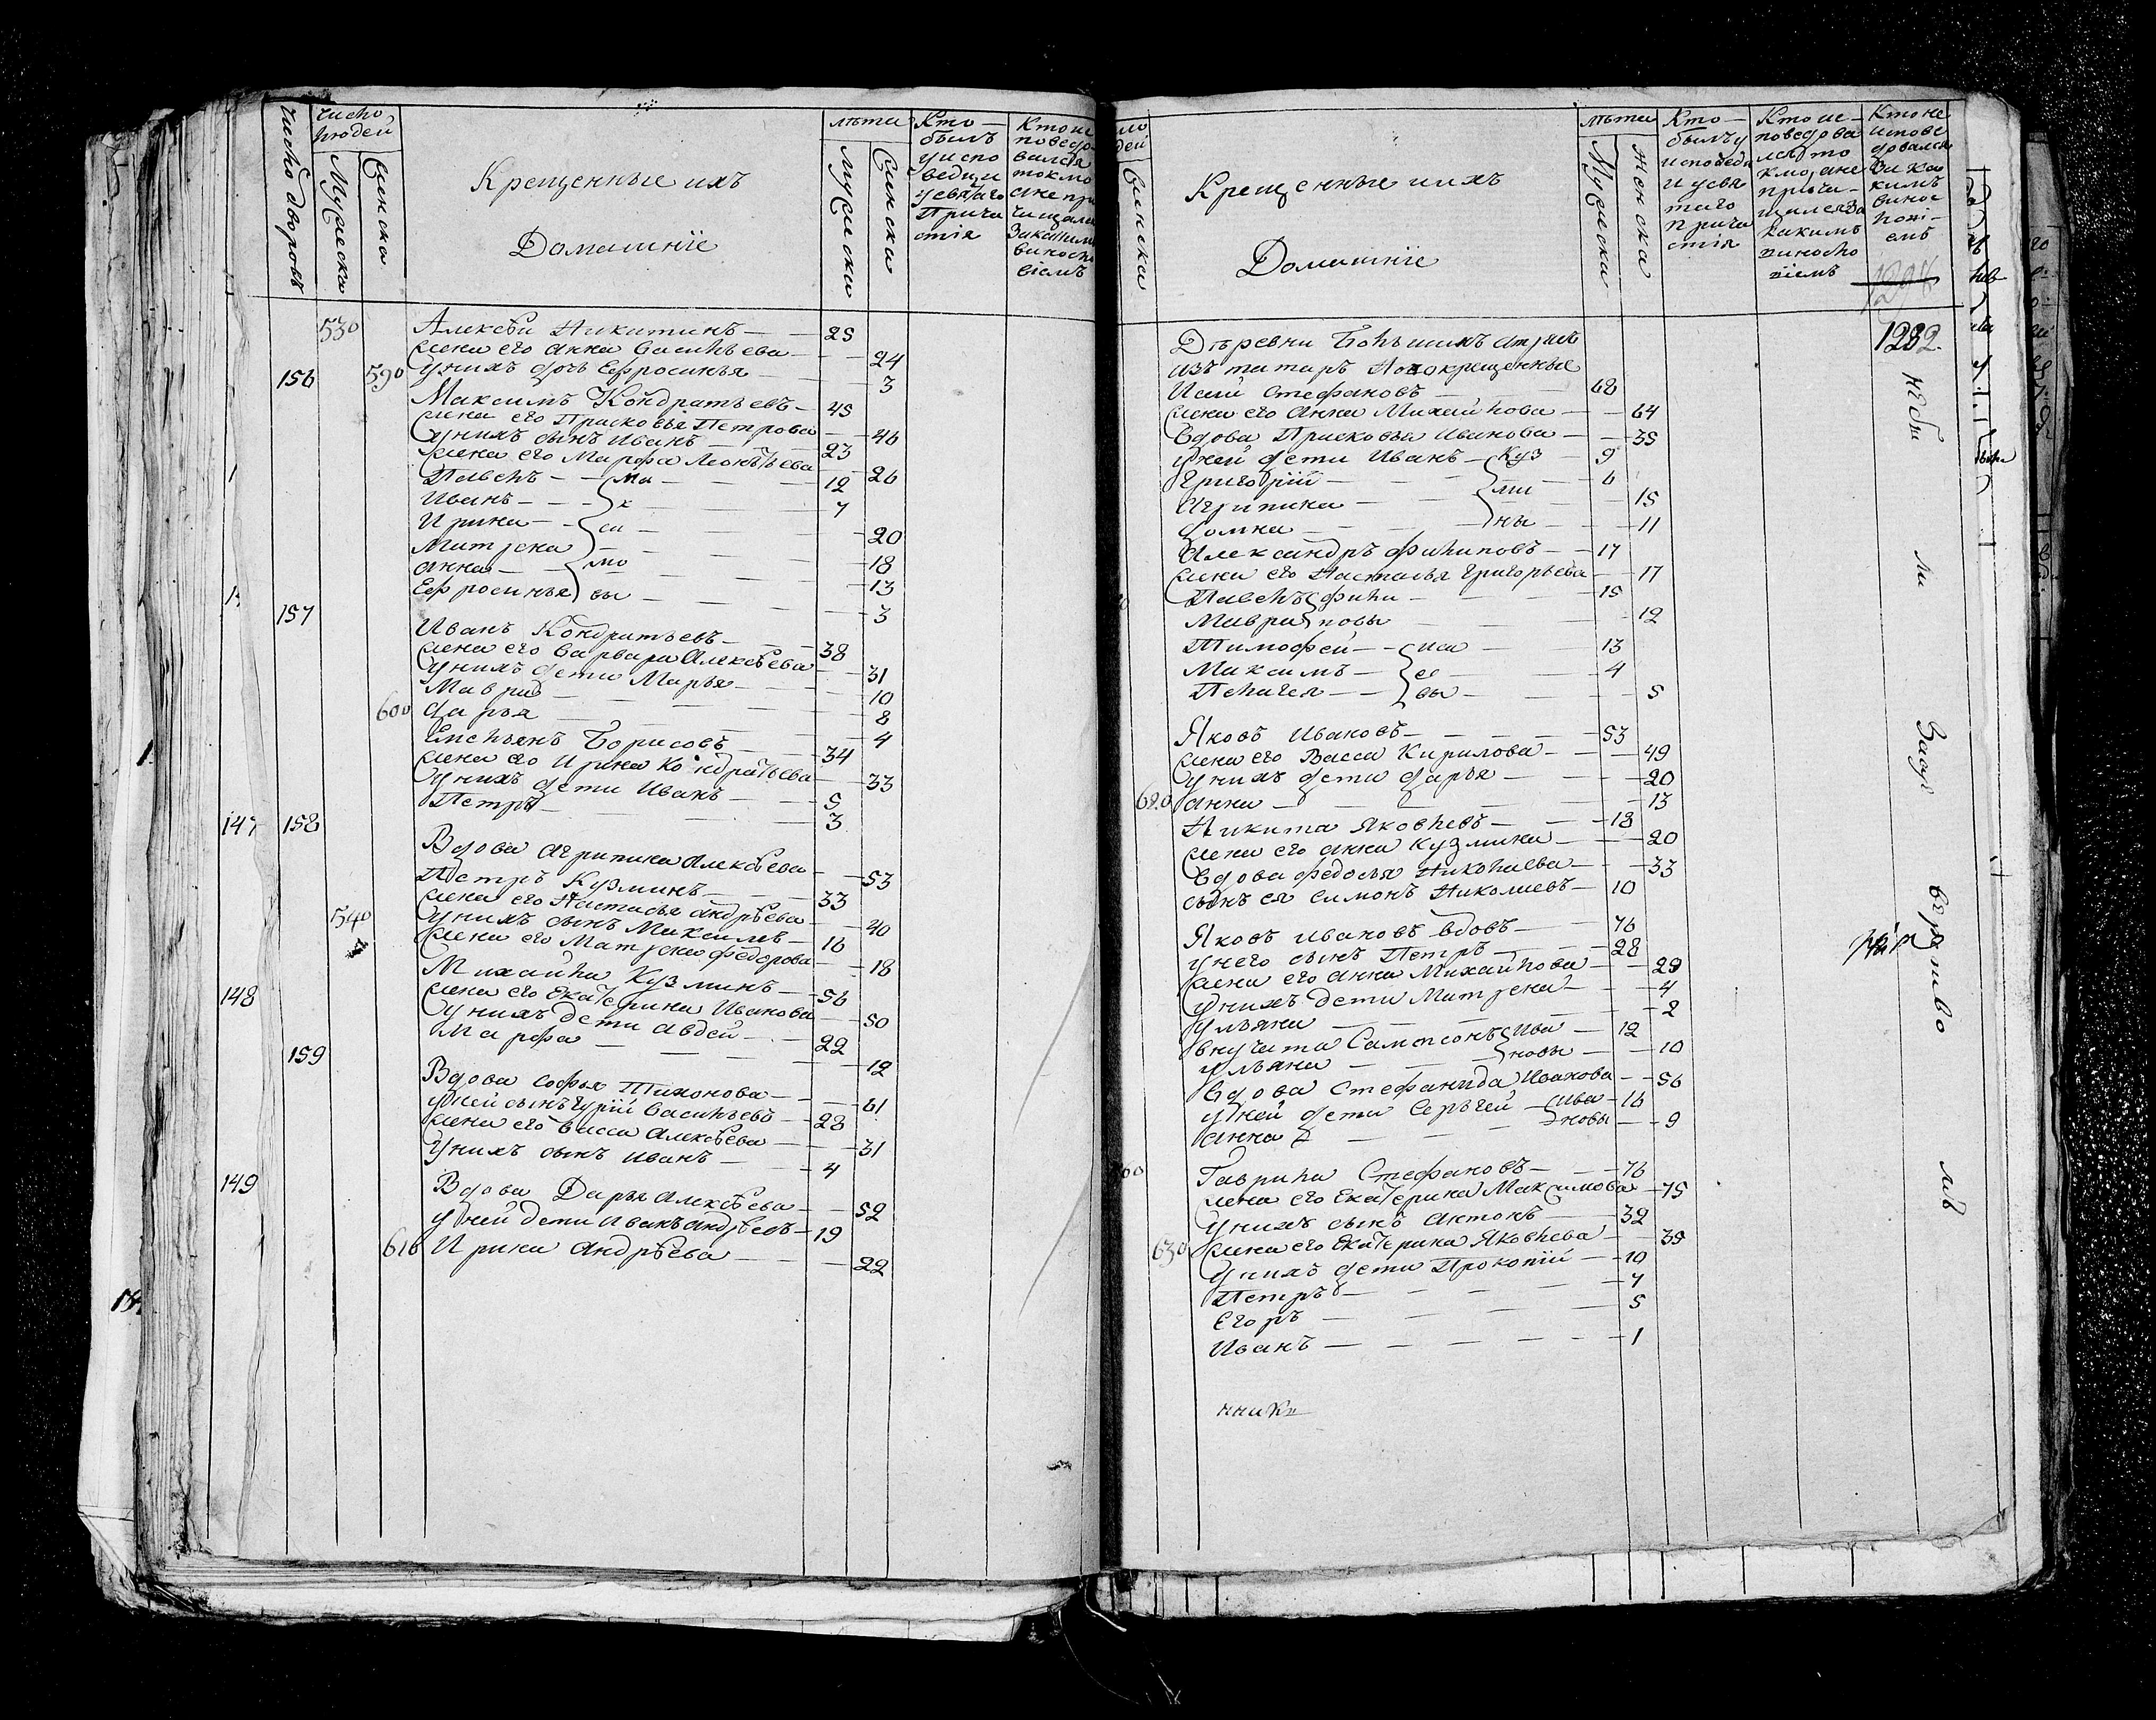 Число дворовъ
Число людей
Мужеска
Женска
Крещенные ихъ
Домашніе
лѣта
Мужеска
Женска
Кто былъ у исповеди и у святаго причастія
Кто исповедовался токмо а не причащался за какимъ винословіемъ
530 Алексѣи Никитинъ 25
жена его Анна Васильева 24
590 у нихъ дочь Ефросинья 3
156
Максимъ Кондратьевъ 45
жена его Прасковья Петрова 46
у нихъ сынъ Иванъ 23
жена его Марфа Леонтьева 26
Павелъ 12
Иванъ 7
Ирина 20
Матрена 18
Анна 13
Ефросинья 3
Макси
мо
вы
157
Иванъ Кондратьевъ 38
жена его Варвара Алексѣева 31
у нихъ дети Марья 10
Мавра 8
600 Дарья 4
Емельянъ Борисовъ 34
жена его Ирина Кондратьева 33
у нихъ дети Иванъ 5
Петръ 3
147 158
Вдова Агрипина Алексѣева 53
Петръ Кузминъ 33
жена его Настасья Андрѣева 40
540 у нихъ сынъ Максимъ 16
жена его Матрена Федорова 18
Михайла Кузминъ 56
жена его Екатерина Иванова 50
148 у нихъ дети Авдей 22
Марфа 12
159
Вдова Софья Тихонова 61
у ней сынъ Гурій Васильевъ 28
жена его Васса Алексѣева 31
у нихъ сынъ Иванъ 4
149
Вдова Дарья Алексѣева 52
у ней дети Иванъ Андрѣевъ 19
616 Ирина Андрѣева 22
Женска
Крещенные ихъ
Домашніе
лѣта
Мужеска
Женска
Кто былъ у исповеди и у святаго причастія
Кто исповедовалъ токмо, а не причащался за какимъ винословіемъ
Кто не исповедовался за какимъ винословіемъ
1282
Дѣревни Большихъ
изъ татаръ Новокрещенные
Исаій Стефановъ 68
жена его Анна Михайлова 64
Вдова Прасковья Иванова 35
у ней дети Иванъ 9
Григорій 6
Агрипина 15
Домна 11
Куз
ми
ны
Александръ Филиповъ 17
жена его Настасья Григорьева 17
Павелъ 15
Мавра 12
Фили
повы
Тимофей 13
Максимъ 4
Пелагея 5
Иса
ѣ
вы
Яковъ Ивановъ 53
жена его Васса Кирилова 49
у нихъ дети Дарья 20
620 Анна 13
Никита Яковлевъ 18
жена его Анна Кузмина 20
Вдова Федосья Николаева 33
сынъ ея Симонъ Николаевъ 10
Яковъ Ивановъ вдовъ 76
у него сынъ Петръ 28
жена его Анна Михайлова 29
у нихъ дети Матрена 4
Ульяна 2
внучата Сампсонъ 12
Ульяна 10
Ива
новы
Вдова Стефанида Иванова 56
у ней дети Сергѣй 16
Анна 9
Ива
новы
Гаврила Стефановъ 76
жена его Екатерина Максимова 75
у нихъ сынъ Антонъ 32
630 жена его Екатерина Яковлева 35
у нихъ дети Прокопій 10
Петръ 7
Егоръ 5
Иванъ 1